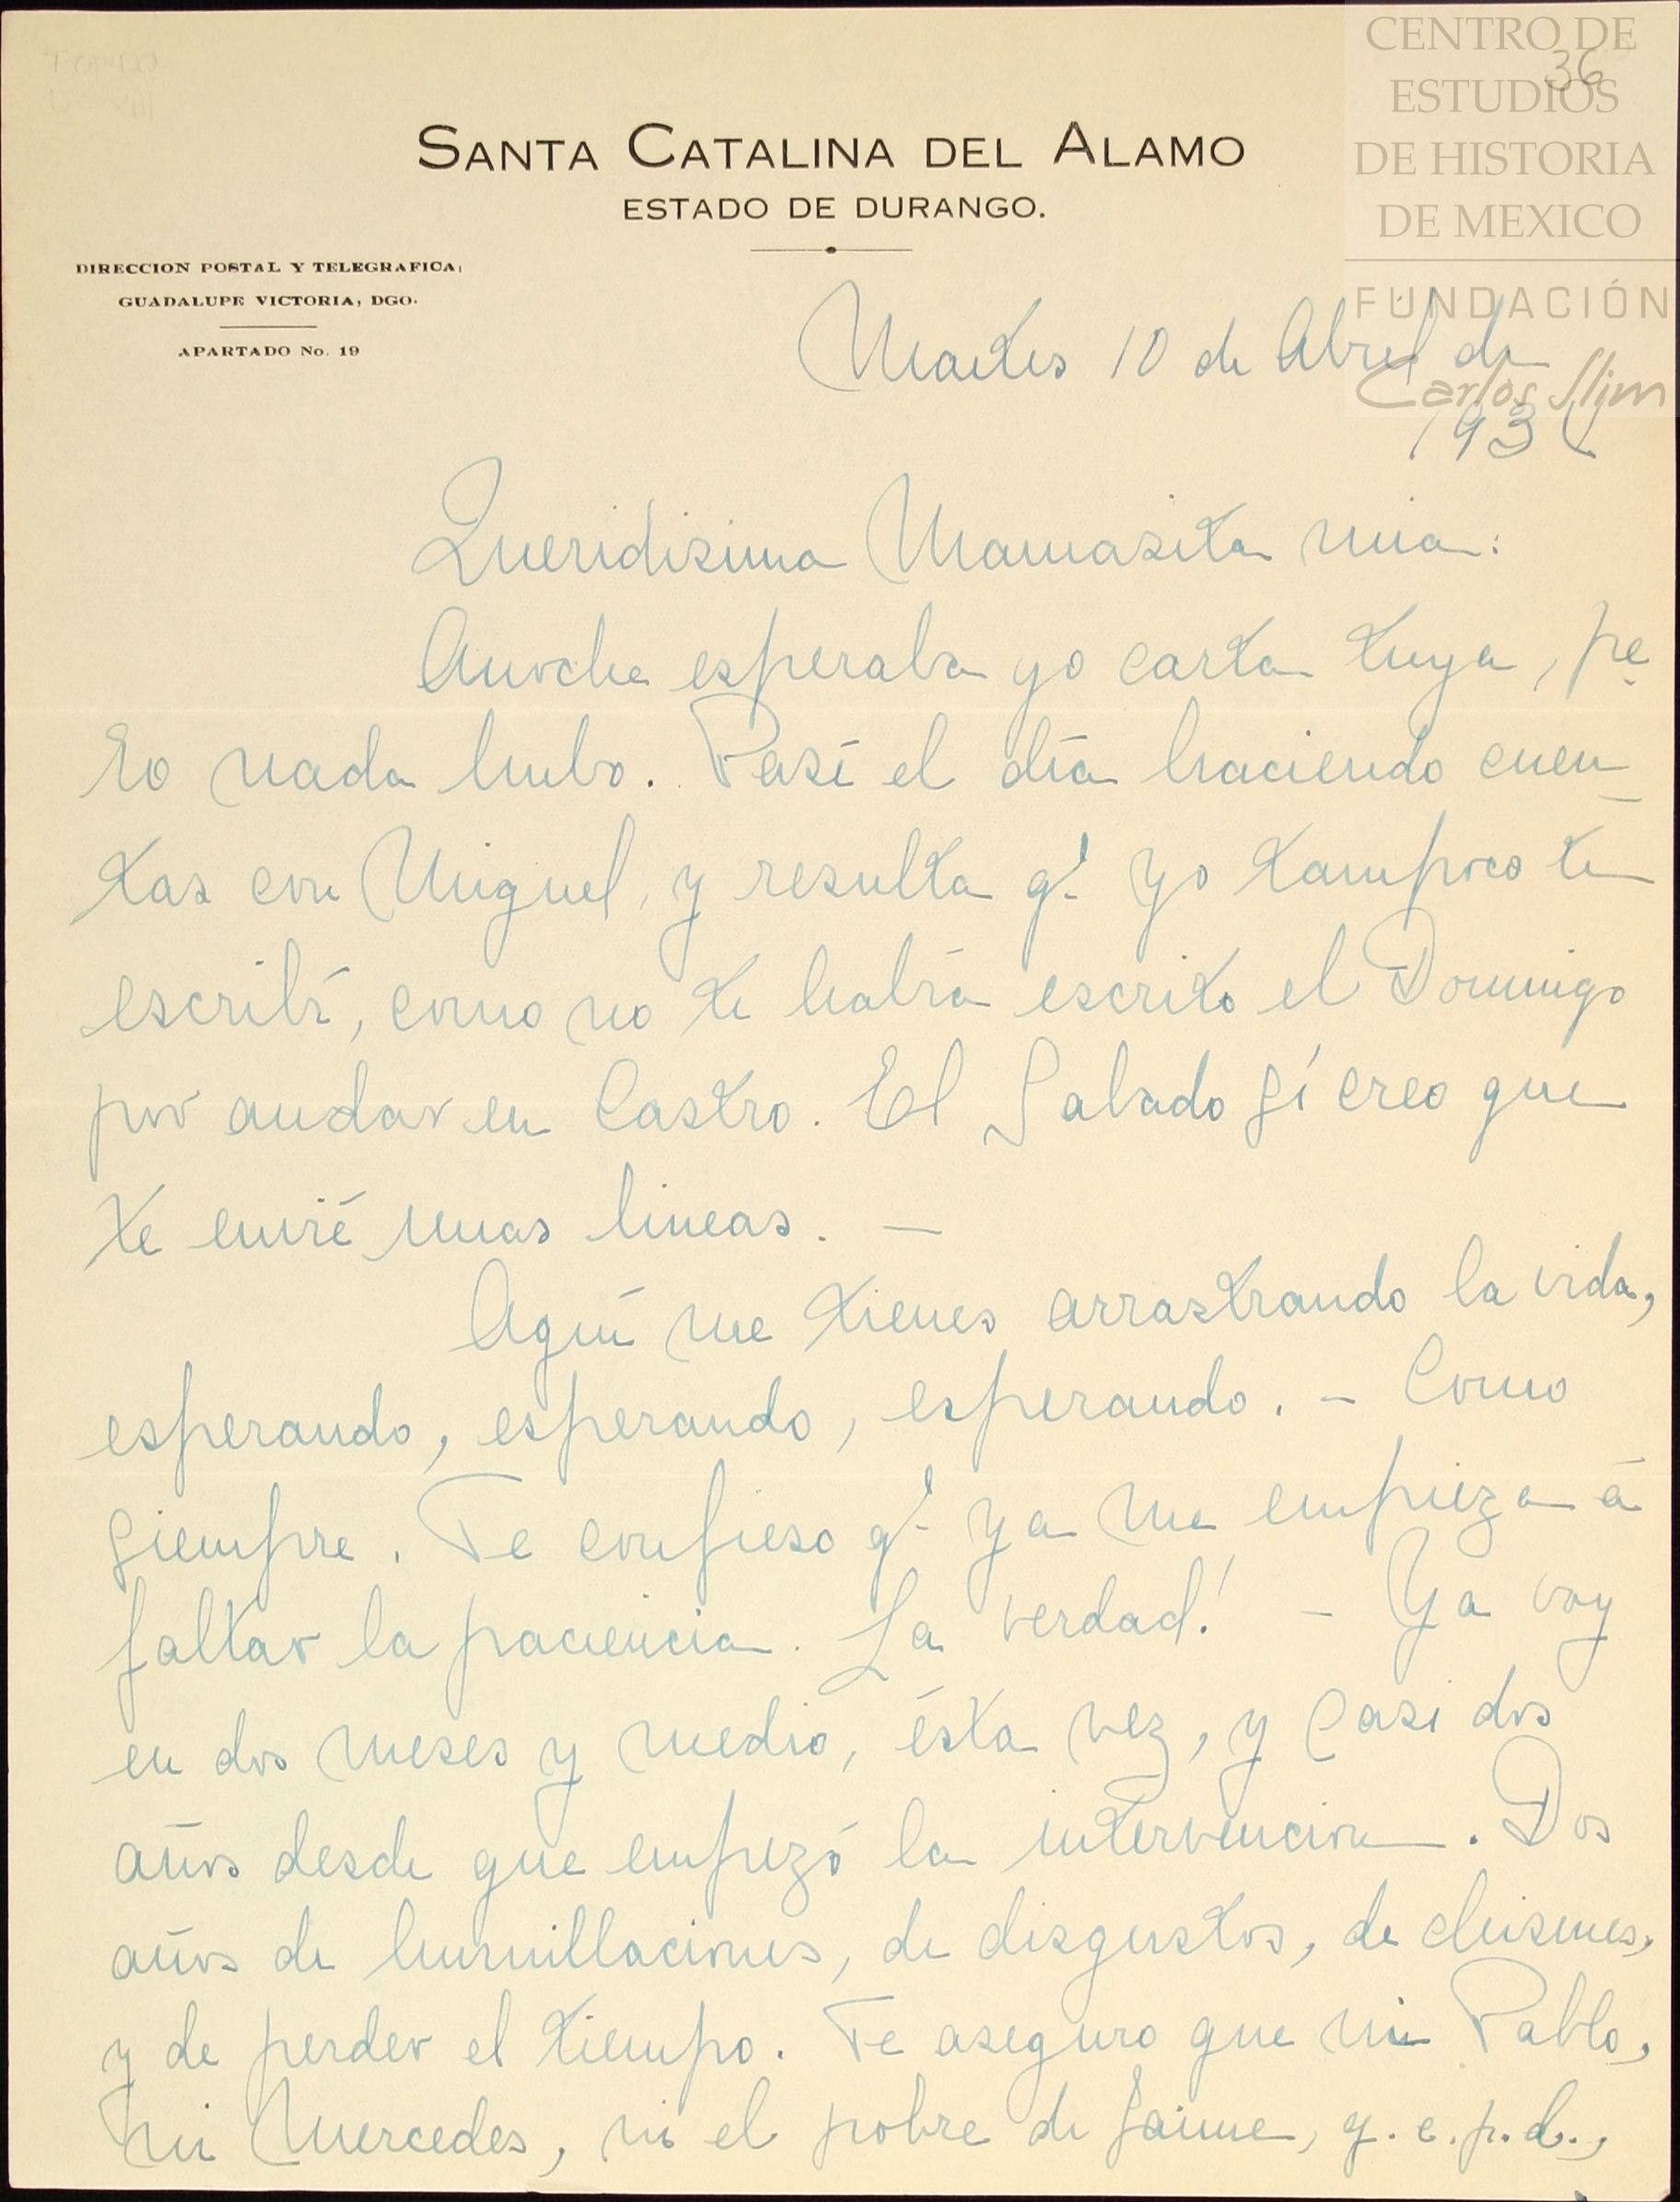 CENTRO DE
ESTUDIOS
DE HISTORIA
DE MEXICO
FUNDACIÓN
Carlos Slim
36
SANTA CATALINA DEL ALAMO
ESTADO DE DURANGO.
DIRECCION POSTAL Y TELEGRAFICA:
GUADALUPE VICTORIA, DGO.
APARTADO No. 19
Martes 10 de Abril de
193
Queridisima Mamasita mia:
Anoche esperaba yo carta tuya, pe
ro nada hubo. Pasé el día haciendo cuen
tas con Miguel, y resulta q.' yo tampoco te
escribí, como no te había escrito el Domingo
por andar en Castro. El Sabado sí creo que
te envié unas lineas. —
Aquí me tienes arrastrando la vida,
esperando, esperando, esperando. – Como
siempre. Te confieso q.' ya me empieza á
faltar la paciencia. La verdad! – Ya voy
en dos meses y medio, ésta vez, y casi dos
años desde que empezó la intervencion. Dos
años de humillaciones, de disgustos, de chismes,
y de perder el tiempo. Te aseguro que ni Pablo,
ni Mercedes, ni el pobre de Jaime, q.e.p.d.,